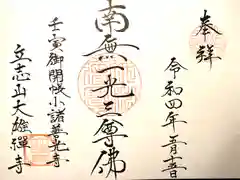 奉拝
令和四年五月十五日
南無一光三尊佛
壬寅御開帳小諸善光寺
丘志山大雄禅寺